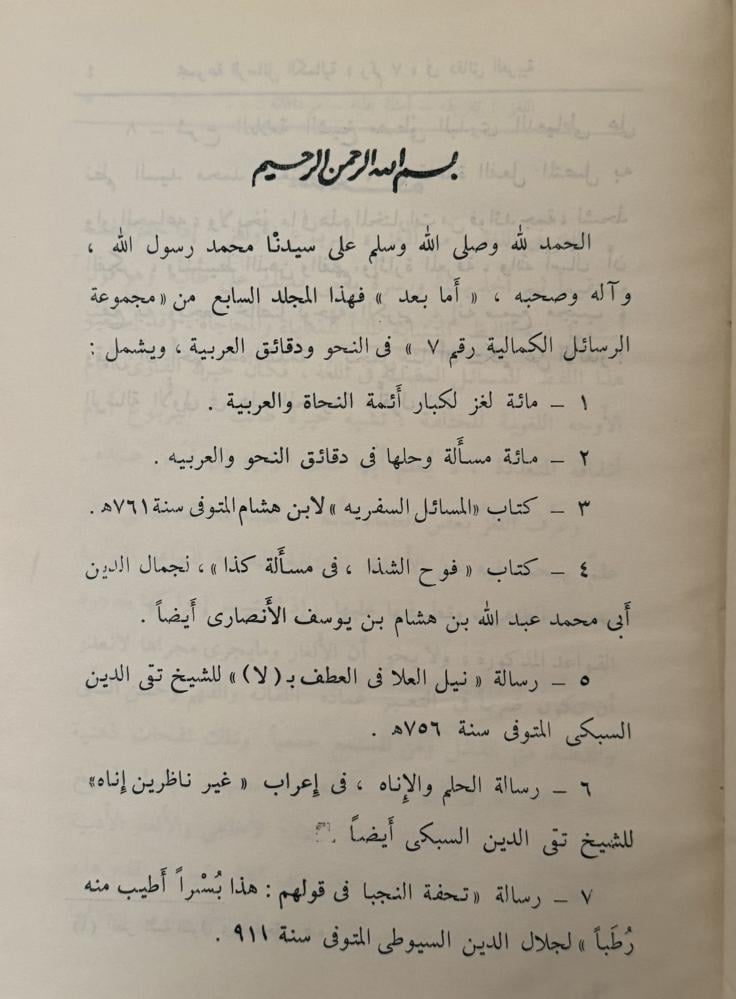 بسم الله الرحمن الرحيم
الحمد لله وصلى الله وسلم على سيدنا محمد رسول الله ،
وآله وصحبه ، « أما بعد » فهذا المجلد السابع من « مجموعة
الرسائل الكمالية رقم ٧ » فى النحو ودقائق العربية ، ويشمل :
١ – مائة لغز لكبار أَئمة النحاة والعربية .
٢ – مائة مسأَلة وحلها فى دقائق النحو والعربيه .
٣ – كتاب «المسائل السفريه» لابن هشام المتوفى سنة ٧٦١ه .
٤ – كتاب « فوح الشذا ، فى مسأَلة كذا» ، لجمال الدين
أَبى محمد عبد الله بن هشام بن يوسف الأَنصارى أَيضاً .
٥ – رسالة « نيل العلا فى العطف بـ (لا) » للشيخ تقى الدين
السبكى المتوفى سنة ٧٥٦ه .
٦ – رسالة الحلم والإِناه ، فى إِعراب « غير ناظرين إِناه»
للشيخ تقى الدين السبكى أَيضاً .
٧ – رسالة « تحفة النجبا فى قولهم : هذا بُسْراً أَطيب منه
رُطَباً » لجلال الدين السيوطى المتوفى سنة ٩١١ .